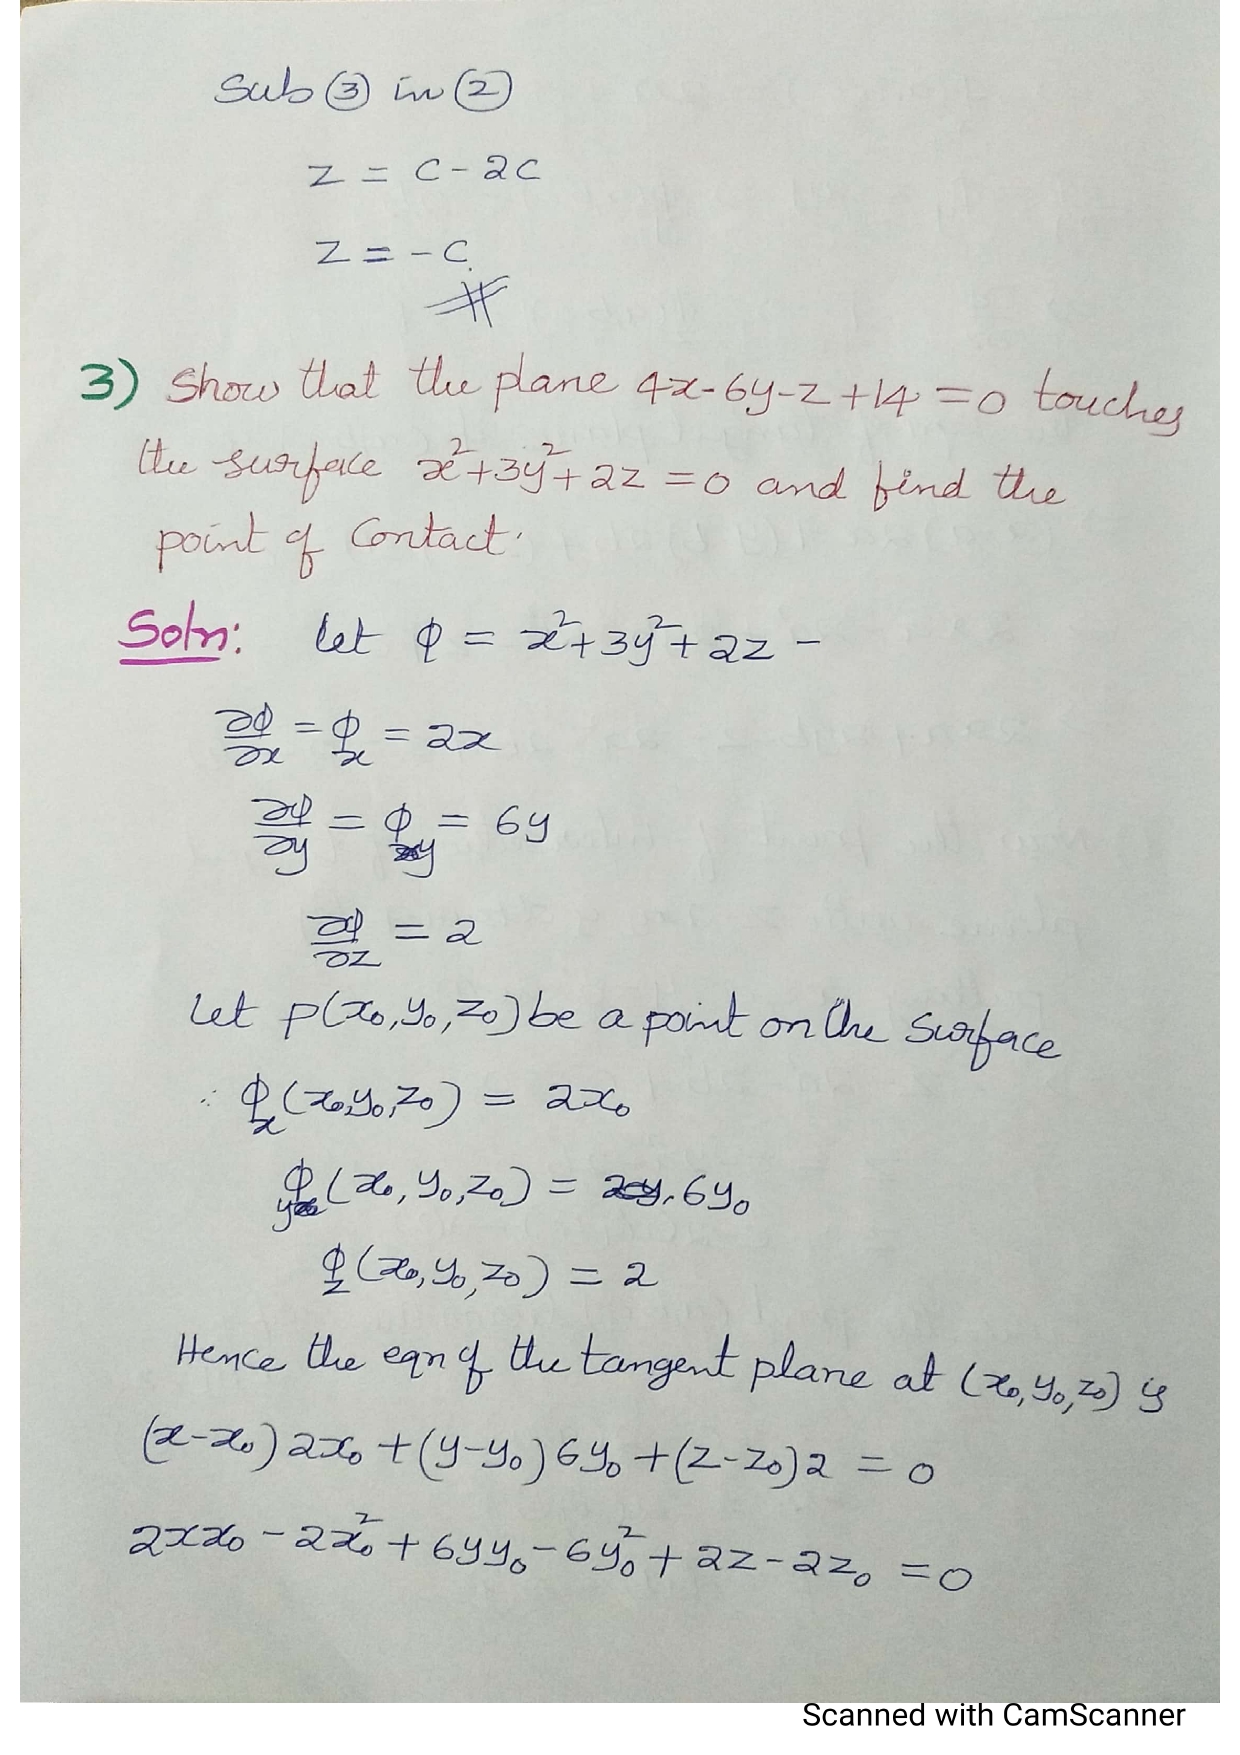 Sub ③ in ②
z = c - 2c
z = -c.
3) Show that the plane 4x-6y-z+14=0 touches
the surface x²+3y²+2z=0 and find the
point of Contact.
Soln: let φ = x²+3y²+2z -
∂φ/∂x = φₓ = 2x
∂φ/∂y = φ_y = 6y
∂φ/∂z = 2
Let p(x₀,y₀,z₀) be a point on the Surface
∴ φₓ(x₀,y₀,z₀) = 2x₀
φ_y(x₀,y₀,z₀) = 6y₀
φ_z(x₀,y₀,z₀) = 2
Hence the eqn of the tangent plane at (x₀,y₀,z₀) is
(x-x₀)2x₀+(y-y₀)6y₀+(z-z₀)2 = 0
2xx₀-2x₀²+6yy₀-6y₀²+2z-2z₀=0
Scanned with CamScanner